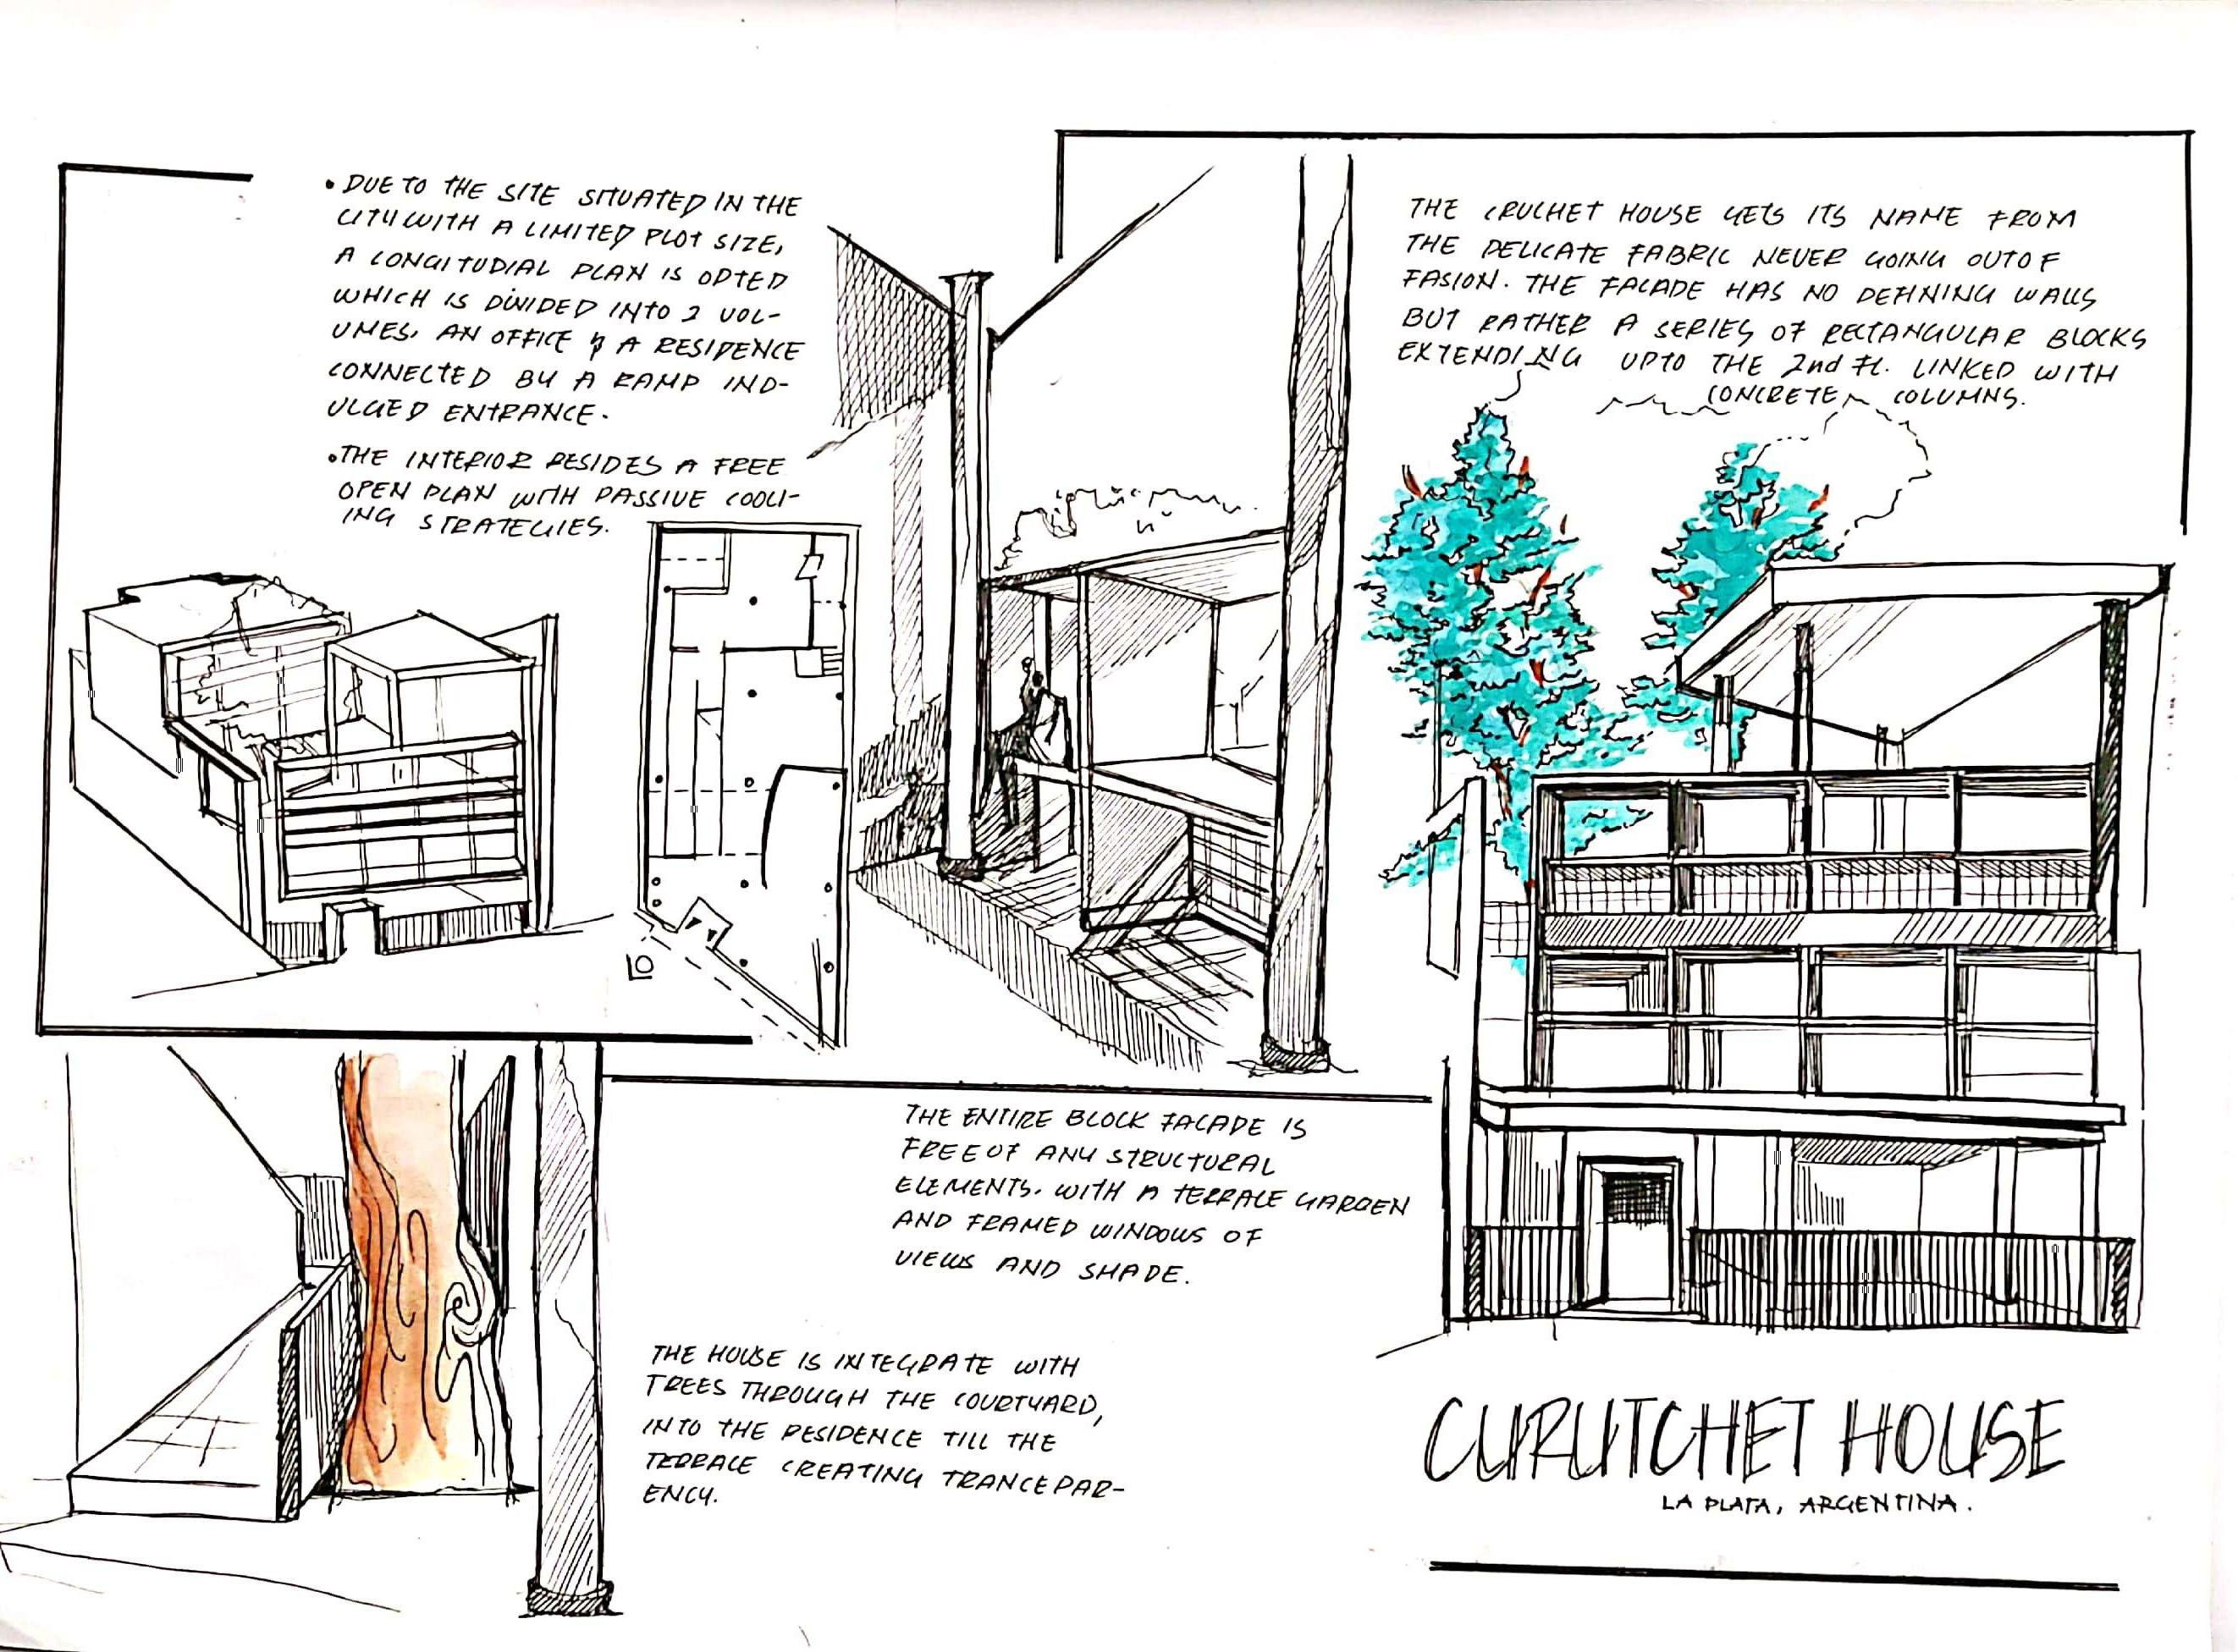 • DUE TO THE SITE SITUATED IN THE
CITY WITH A LIMITED PLOT SIZE,
A LONGITUDIAL PLAN IS OPTED
WHICH IS DIVIDED INTO 2 VOL-
UMES, AN OFFICE & A RESIDENCE
CONNECTED BY A RAMP IND-
ULGED ENTRANCE.
• THE INTERIOR RESIDES A FREE
OPEN PLAN WITH PASSIVE COOLI-
ING STRATEGIES.
THE CRUCHET HOUSE GETS ITS NAME FROM
THE DELICATE FABRIC NEVER GOING OUT OF
FASION. THE FACADE HAS NO DEFINING WALLS
BUT RATHER A SERIES OF RECTANGULAR BLOCKS
EXTENDING UPTO THE 2nd FL. LINKED WITH
CONCRETE COLUMNS.
THE ENTIRE BLOCK FACADE IS
FREE OF ANY STRUCTURAL
ELEMENTS. WITH A TERRACE GARDEN
AND FRAMED WINDOWS OF
VIEWS AND SHADE.
THE HOUSE IS INTEGRATE WITH
TREES THROUGH THE COURTYARD,
INTO THE RESIDENCE TILL THE
TERRACE CREATING TRANCEPAR-
ENCY.
CURUTCHET HOUSE
LA PLATA, ARGENTINA.